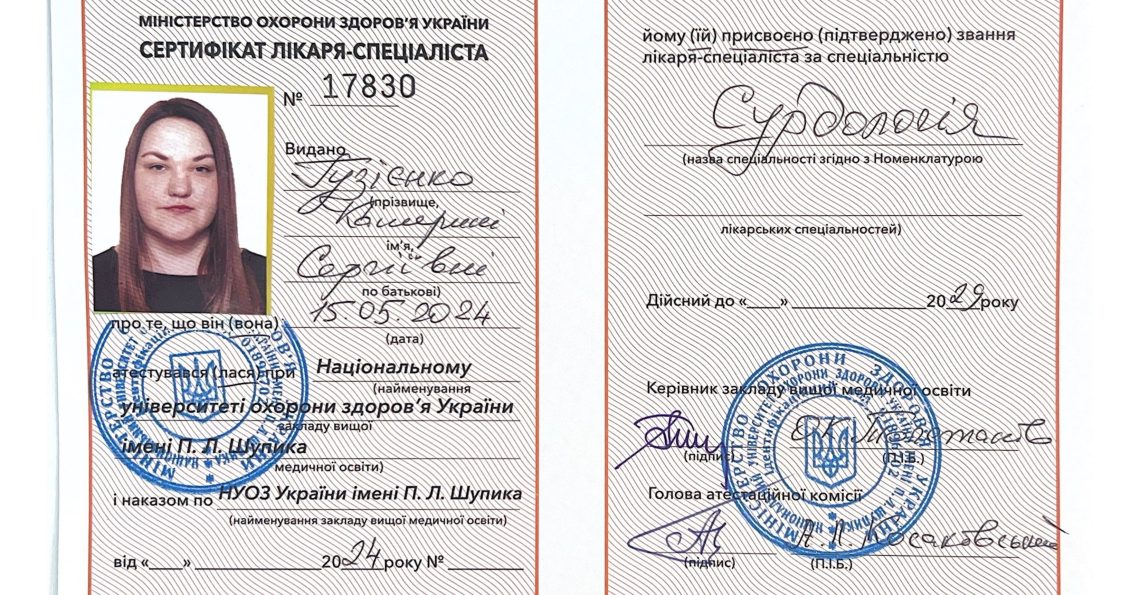 МІНІСТЕРСТВО ОХОРОНИ ЗДОРОВ'Я УКРАЇНИ
СЕРТИФІКАТ ЛІКАРЯ-СПЕЦІАЛІСТА
№ 17830
Видано Гузієнко
(прізвище,
Катерині
ім'я,
Сергіївні
по батькові)
15.05.2024
(дата)
про те, що він (вона)
атестувався (лася) при Національному
(найменування
університеті охорони здоров'я України
закладу вищої
імені П. Л. Шупика
медичної освіти)
і наказом по НУОЗ України імені П. Л. Шупика
(найменування закладу вищої медичної освіти)
від «___» ________ 2024 року № ______
йому (їй) присвоєно (підтверджено) звання
лікаря-спеціаліста за спеціальністю
Сурдологія
(назва спеціальності згідно з Номенклатурою
лікарських спеціальностей)
Дійсний до «___» ____________ 2029 року
Керівник закладу вищої медичної освіти
(підпис) (П.І.Б.)
Голова атестаційної комісії
(підпис) (П.І.Б.)
МІНІСТЕРСТВО ОХОРОНИ ЗДОРОВ'Я УКРАЇНИ